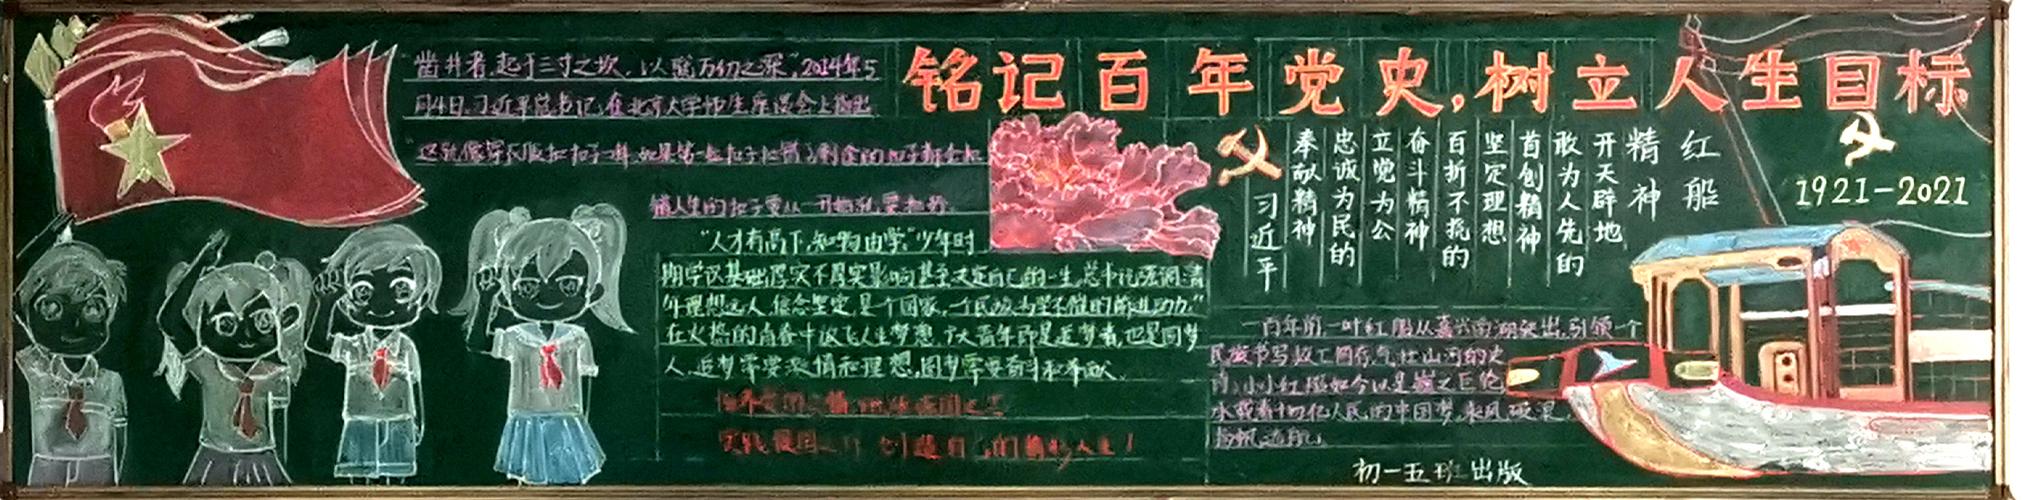 铭记百年党史，树立人生目标
"凿井者，起于三寸之坎，以就万仞之深"，2014年5
月4日，习近平总书记在北京大学师生座谈会上指出
"这就像穿衣服扣扣子一样，如果第一粒扣子扣错了剩余的扣子都会扣
错人生的扣子要从一开始就要扣好
"人才有高下，知物由学"少年时
期学识基础厚实不厚实影响甚至决定自己的一生，总书记强调：青
年理想远大，信念坚定，是一个国家，一个民族为坚不摧的前进动力"
在火热的青春中放飞人生梦想，广大青年即是追梦者，也是圆梦
人，追梦需要激情和理想，圆梦需要奋斗和奉献、
红船
精神
开天辟地
敢为人先的
首创精神
坚定理想
百折不挠的
奋斗精神
立党为公
忠诚为民的
奉献精神
习近平
1921-2021
一百年前一叶红船从嘉兴南湖驶出，引领一个
民族书写
气壮山河的史
小小红船如今以是巍巍巨轮
水载着十四亿人民的中国梦，乘风破浪，
扬帆远航
初一五班出版